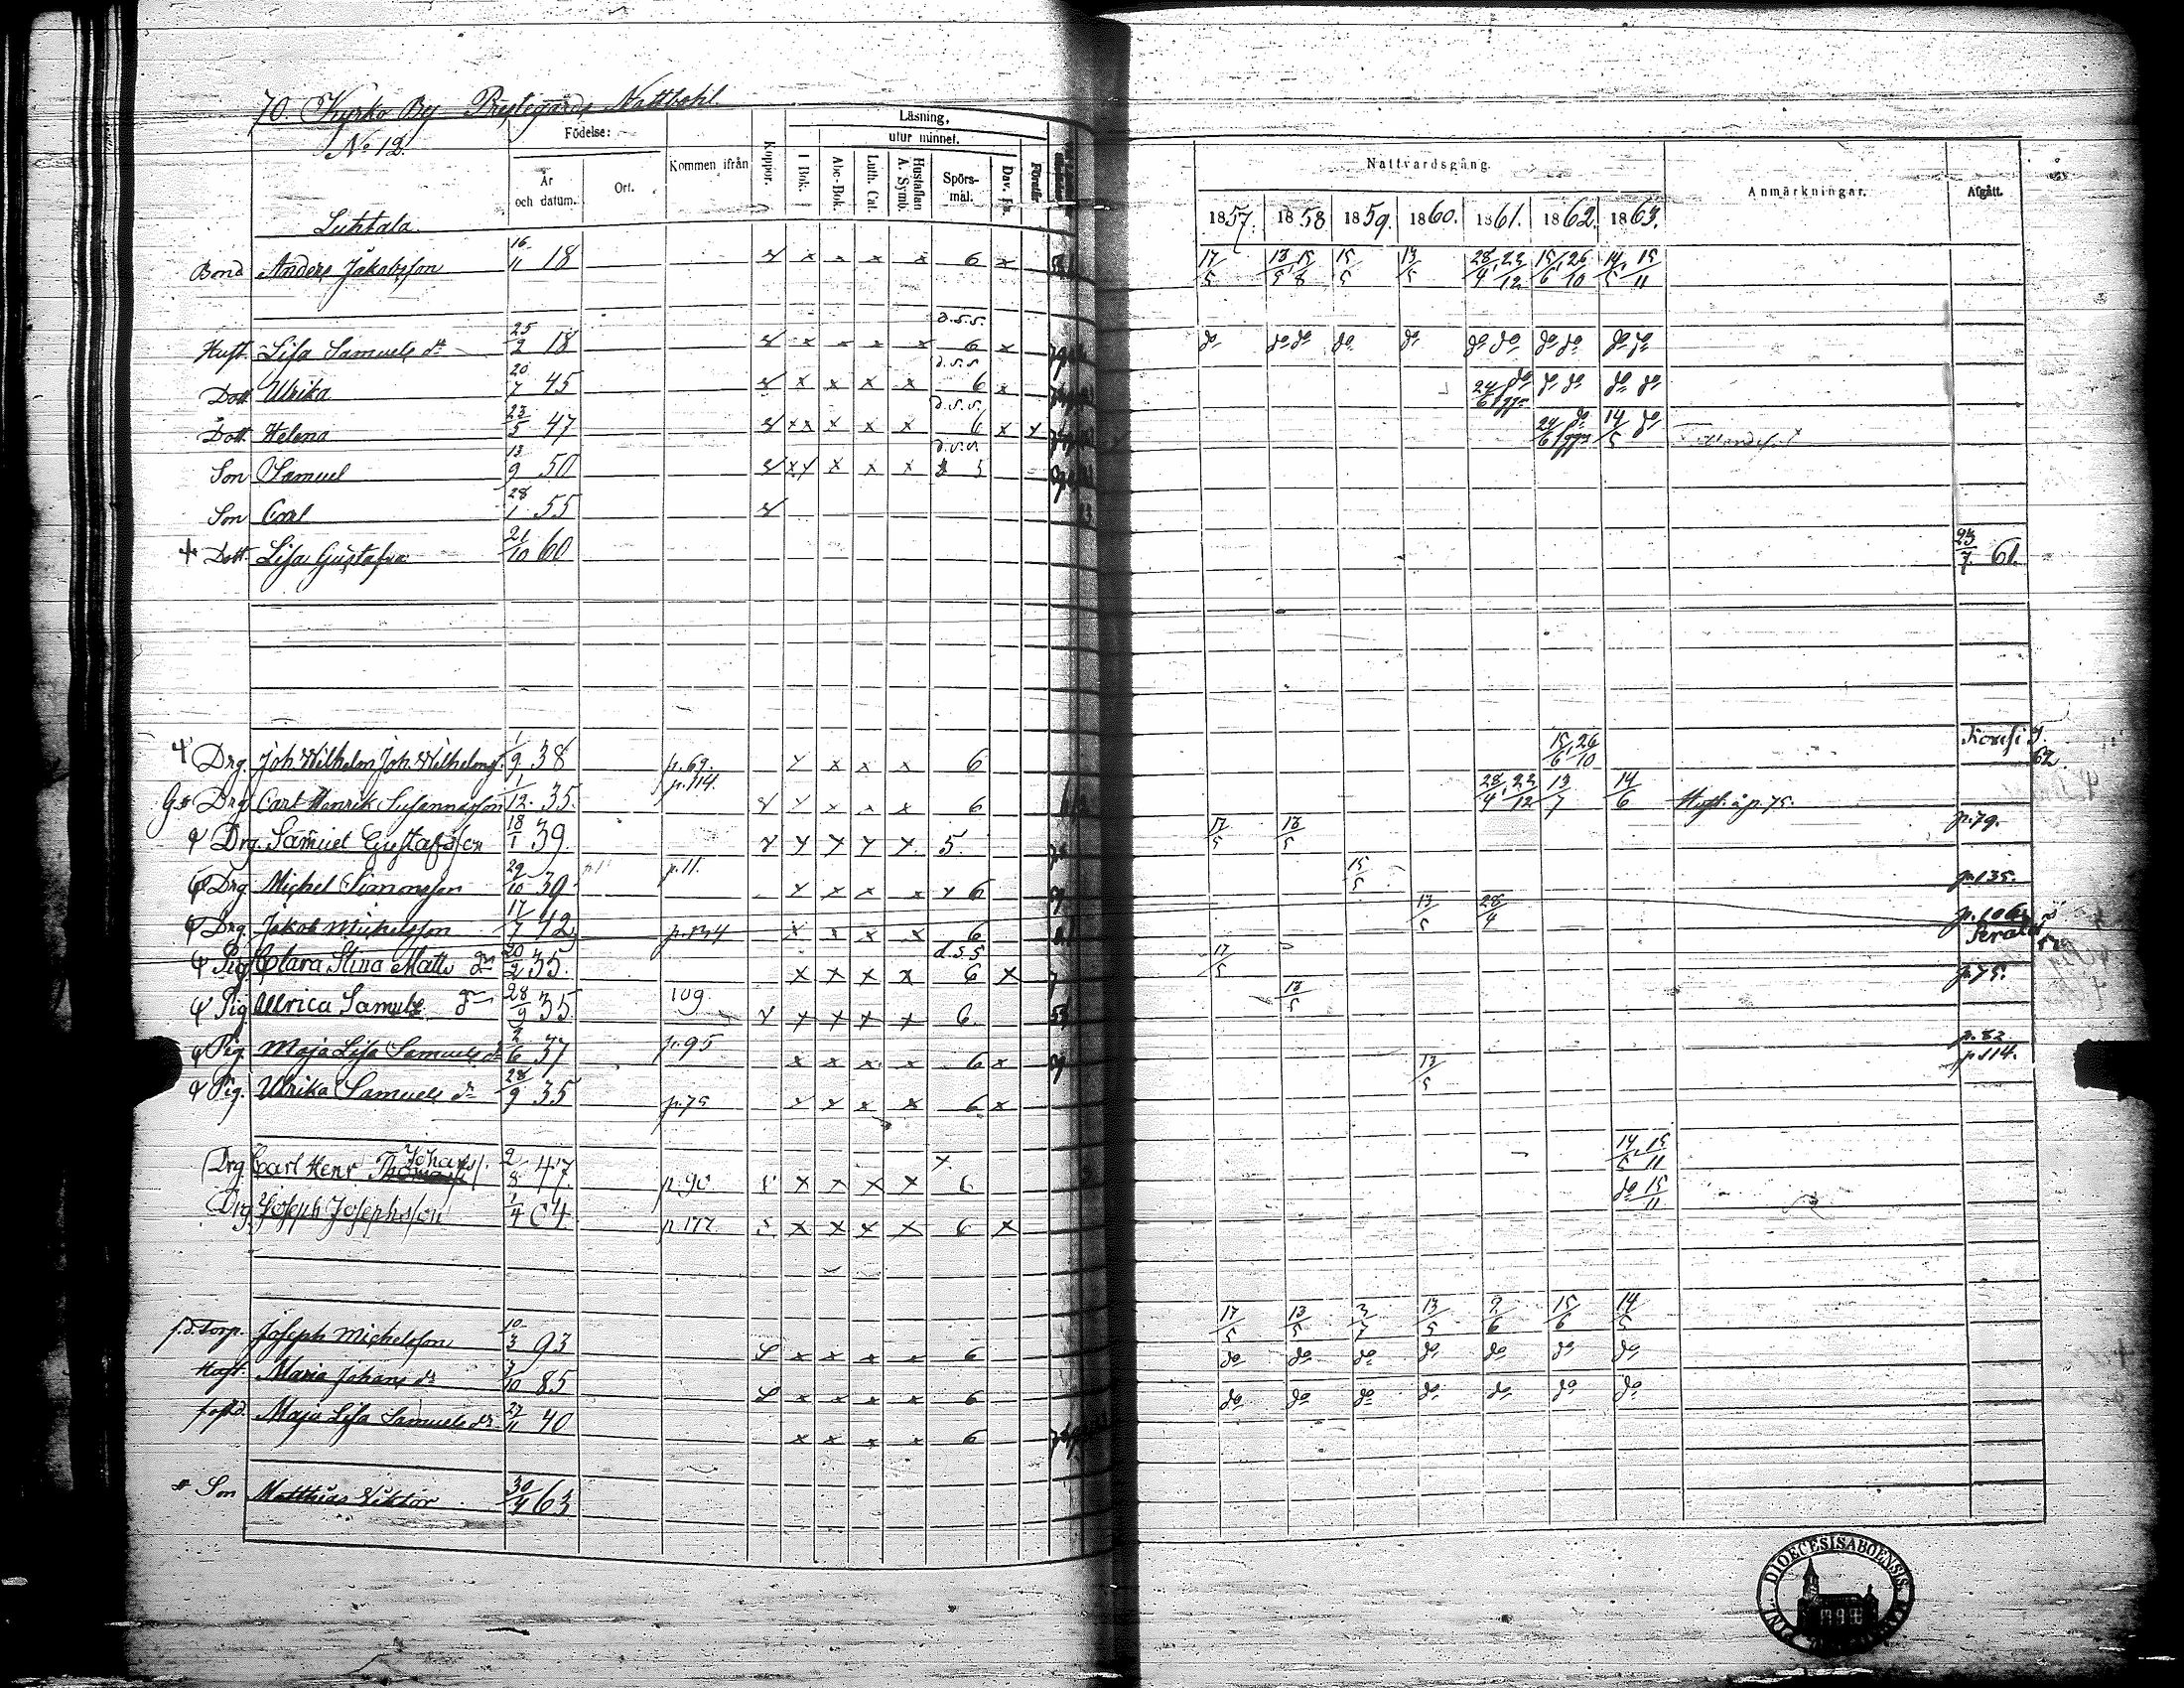 70. Kyrko By Prestegårds Nattbohl.
No 12.
Födelse:
År och datum.
Ort.
Kommen ifrån
Koppor.
Läsning,
utur minnet.
I Bok.
Abc-Bok.
Luth. Cat.
Hustaflan A. Symb.
Spörsmål.
Dav. Ps.
Förstår
Nattvardsgång
1857. 1858 1859. 1860. 1861. 1862. 1863.
Anmärkningar.
Afgått.
Luhtala.
Bond Anders Jakobsson 16/11 18 x x x x 6 x 17/5 13/5 15/8 15/5 13/5 28/4, 22/12 15/6, 26/10 14/5, 15/11
d.s.s.
Hust. Lisa Samuels dr 25/2 18 x x x x 6 x do do do do do do do do do do do
d.s.s.
Dott Ulrika 20/7 45 x x x x 6 x 24/6 do do do do do
d.s.s.
Dott. Helena 23/5 47 xx x x x 6 x 24/6 do 14/5 do
d.s.s.
Son Samuel 13/9 50 x x x 5
Son Carl 28/1 55
Dott. Lisa Gustafva 21/10 60 23/7 61.
Drg. Joh Wilhelm Joh. Wilhelmss. 1/9 38 p.69. x x x 6 15/6, 26/10 62.
Drg Carl Henrik Susannasson 1/12. 35. p.114. x x x 6 28/4, 22/12 13/7 14/6 Hust. å p. 75.
Drg. Samuel Gustafsson 18/1 39. 5. 17/5 13/5 p.79.
Drg Michel Simonsson 29/10 39 p.11. x x x 6 15/5 p.135.
Drg. Jakob Michelsson 17/7 42 x x x x 6 13/5 28/4 p.106
d.s.s
Pig Clara Stina Matts dr 20/2 35. x x x x 6 x 17/5
Pig Ulrica Samuls dr 28/9 35 109. x x x x 6. 13/5 p.75.
Pig. Maja Lisa Samuels dr 2/6 37 p.95 x x x x 6 x p.82
Pig. Ulrika Samuels dr 28/9 35 p.75 x x x x 6 x 13/5 p.114.
Drg Carl Henr. Thomass Johanss. 2/8 47. p.90 x x x x 6 14/5, 15/11
Drg Joseph Josephsson 1/4 p.177 x x x x 6 x do 15/11
f.d. torp. Joseph Michelsson 10/3 93 x x x x 6 17/5 13/5 3/7 13/5 9/6 15/6 14/5
Hust. Maria Johans dr 7/10 85 x x x x 6 do do do do do do do
Maja Lisa Samuels dr. 27/11 40 x x x x 6 do do do do do do do
Son Matthias Wiktor 30/4 63
DIOECESIS ABOENSIS